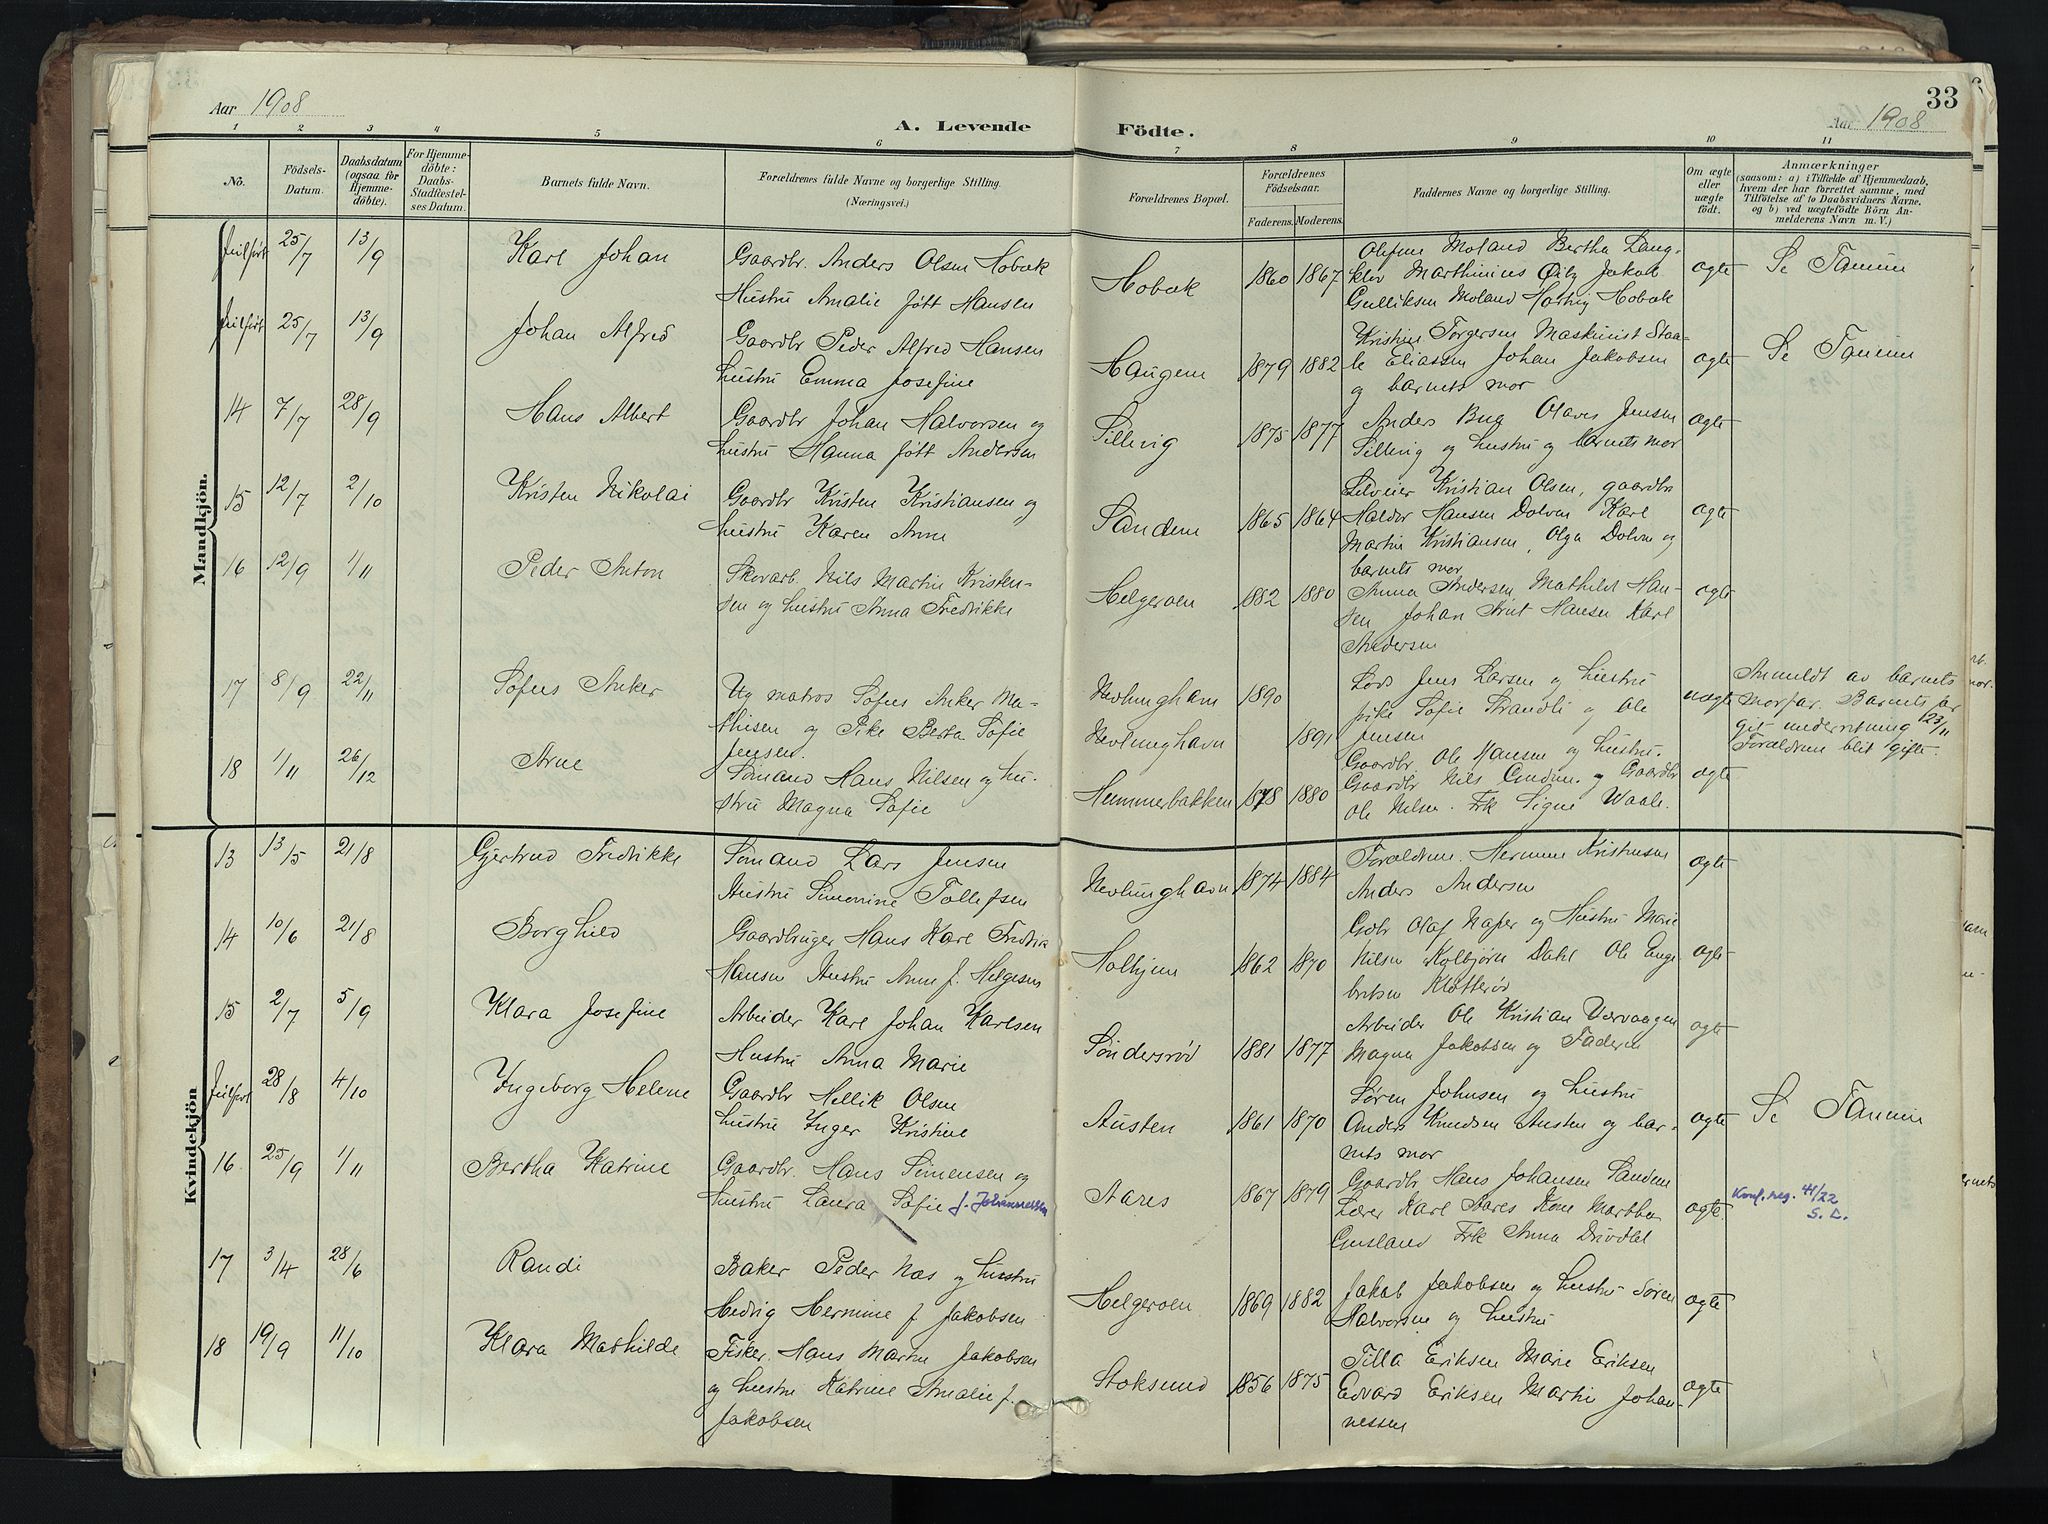 Aar 1908
A. Levende Födte.
33
Aar 1908
1 2 3 4 5 6 7 8 9 10 11
No.
Födsels-Datum.
Daabsdatum (ogsaa for Hjemmedöbte).
For Hjemmedöbte: Daabs-Stadfæstelses Datum.
Barnets fulde Navn.
Forældrenes fulde Navne og borgerlige Stilling. (Næringsvei.)
Forældrenes Bopæl.
Forældrenes Födselsaar.
Faderens. Moderens.
Faddernes Navne og borgerlige Stilling.
Om ægte eller uægte födt.
Anmærkninger
(saasom: a) i Tilfælde af Hjemmedaab, hvem der har forrettet samme, med Tilföielse af to Daabsvidners Navne, og b) ved uægtefödte Börn Anmelderens Navn m. V.)
Mandkjön.
25/7 13/9 Karl Johan
Gaardbr. Anders Olsen Hobæk
Hustru Amalie født Hansen
Hobæk 1860 1867
Olefine Moland Bertha Lang-
Marthinius Jakob
Gulliksen Moland Hobæk
ægte
25/7 13/9 Johan Alfred
Gaardbr Peder Alfred Hansen
hustru Emma Josefine
Haugene 1879 1882
Kristine Torgersen Maskinist Staa-
le Eliassen Johan Jakobsen
og barnets mor
ægte
14 7/7 28/9 Hans Albert
Gaardbr Johan Halvorsen og
hustru Hanna født Andersen
Sillevig 1875 1877
Anders Bua Olaves Jensen
Sillevig og hustru og barnets mor
ægte
15 12/7 2/10 Kristen Nikolai
Gaardbr Kristen Kristiansen og
hustru Karen Anne
Sanden 1865 1864
Kristian Olsen, gaardbr
Haldor Hansen Dolven Karl
Martin Kristiansen, Olga Dolven og
barnets mor
ægte
16 12/9 1/11 Peder Anton
Skovarb. Nils Martin Kristen-
sen og hustru Anna Fredrikke
Helgeroen 1882 1880
Anna Andersen, Mathilde Han-
sen Johan Hansen Karl
Andersen
ægte
17 8/9 22/11 Sofus Anker
Ug matros Sofus Anker Ma-
thisen og Pike Berta Sofie
Jensen.
Nevlunghavn 1890
Nevlunghavn 1891
Lods Jens Larsen og hustru
pike Sofie Strandli og Ole
Jensen
uægte
Anmeldt av barnets
morfar. Barnets far
git underretning 23/11
Forældrene blit gifte.
18 1/11 26/12 Arne
Sømand Hans Nilsen og hu-
stru Magna Sofie
Hummerbakken 1878 1880
Gaardbr. Ole Hansen og hustru.
Gaardbr Nils og Gaardbr
Ole Nilsen. Frk Signe Waale.
ægte
Kvindekjön
13 13/5 21/8 Gjertrud Fredrikke
Sømand Lars Jensen
Hustru Simonine Tollefsen
Nevlunghavn 1874 1884
Forældrene. Hermine Kristensen
Anders Andersen
ægte
14 10/6 21/8 Borghild
Gaardbruger Hans Karl Fredrik
Hansen Hustru Anne f. Helgesen
Holhjem 1862 1870
Gdbr Olaf Naper og Hustru Marie
Nilsen Kolbjørn Dahl Ole Enge-
bretsen
ægte
15 2/7 5/9 Klara Josefine
Arbeider Karl Johan Karlsen
Hustru Anna Marie
Søndersrød 1881 1877
Arbeider Ole Kristian Værvaagen
Magna Jakobsen og Faderen
ægte
28/8 4/10 Ingeborg Helene
Gaardbr Hellik Olsen
hustru Inger Kristine
Austen 1861 1870
Søren Johnsen og hustru
Anders Knudsen Austen og bar-
nets mor
ægte
16 25/9 1/11 Bertha Katrine
Gaardbr. Hans Simensen og
hustru Laura Sofie f. Johannessen
Stares 1867 1879
Gaardbr Hans Johansen Sanden
Lærer Karl Stares Kone Marthe
Gusland Frk Anna
ægte.
Konf. reg. 41/22
S. L.
17 3/4 28/6 Randi
Baker Peder Næs og hustru
Hedvig Hermine f Jakobsen
Helgeroen 1869 1882
Jakob Jakobsen og hustru Søren
Halvorsen og hustru
ægte
18 19/9 11/10 Klara Mathilde
Fisker. Hans Martin Jakobsen
og hustru Katrine Amalie f.
Jakobsen
Stoksund 1856 1875
Tilla Eriksen Marie Eriksen
Edvard Eriksen Martin Johan-
nessen
ægte